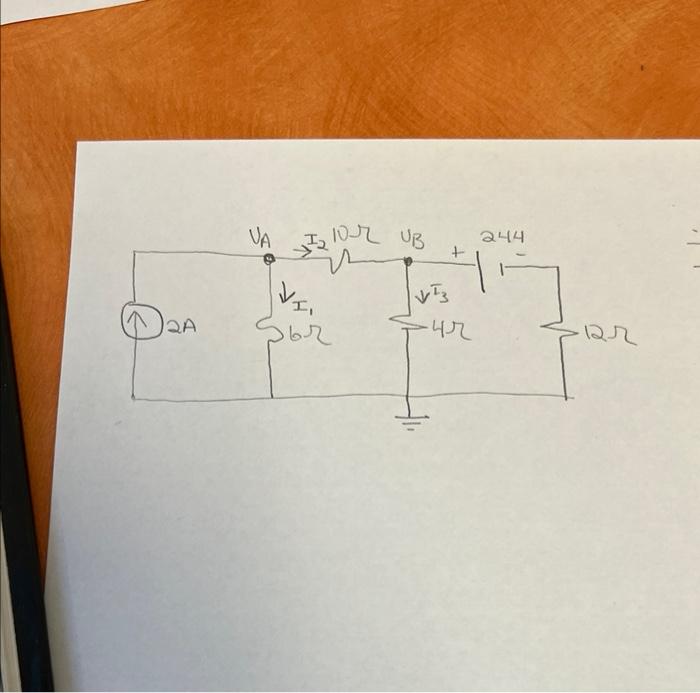 VA I2 10Ω VB + 244 -
2A I1 6Ω I3 4Ω 12Ω